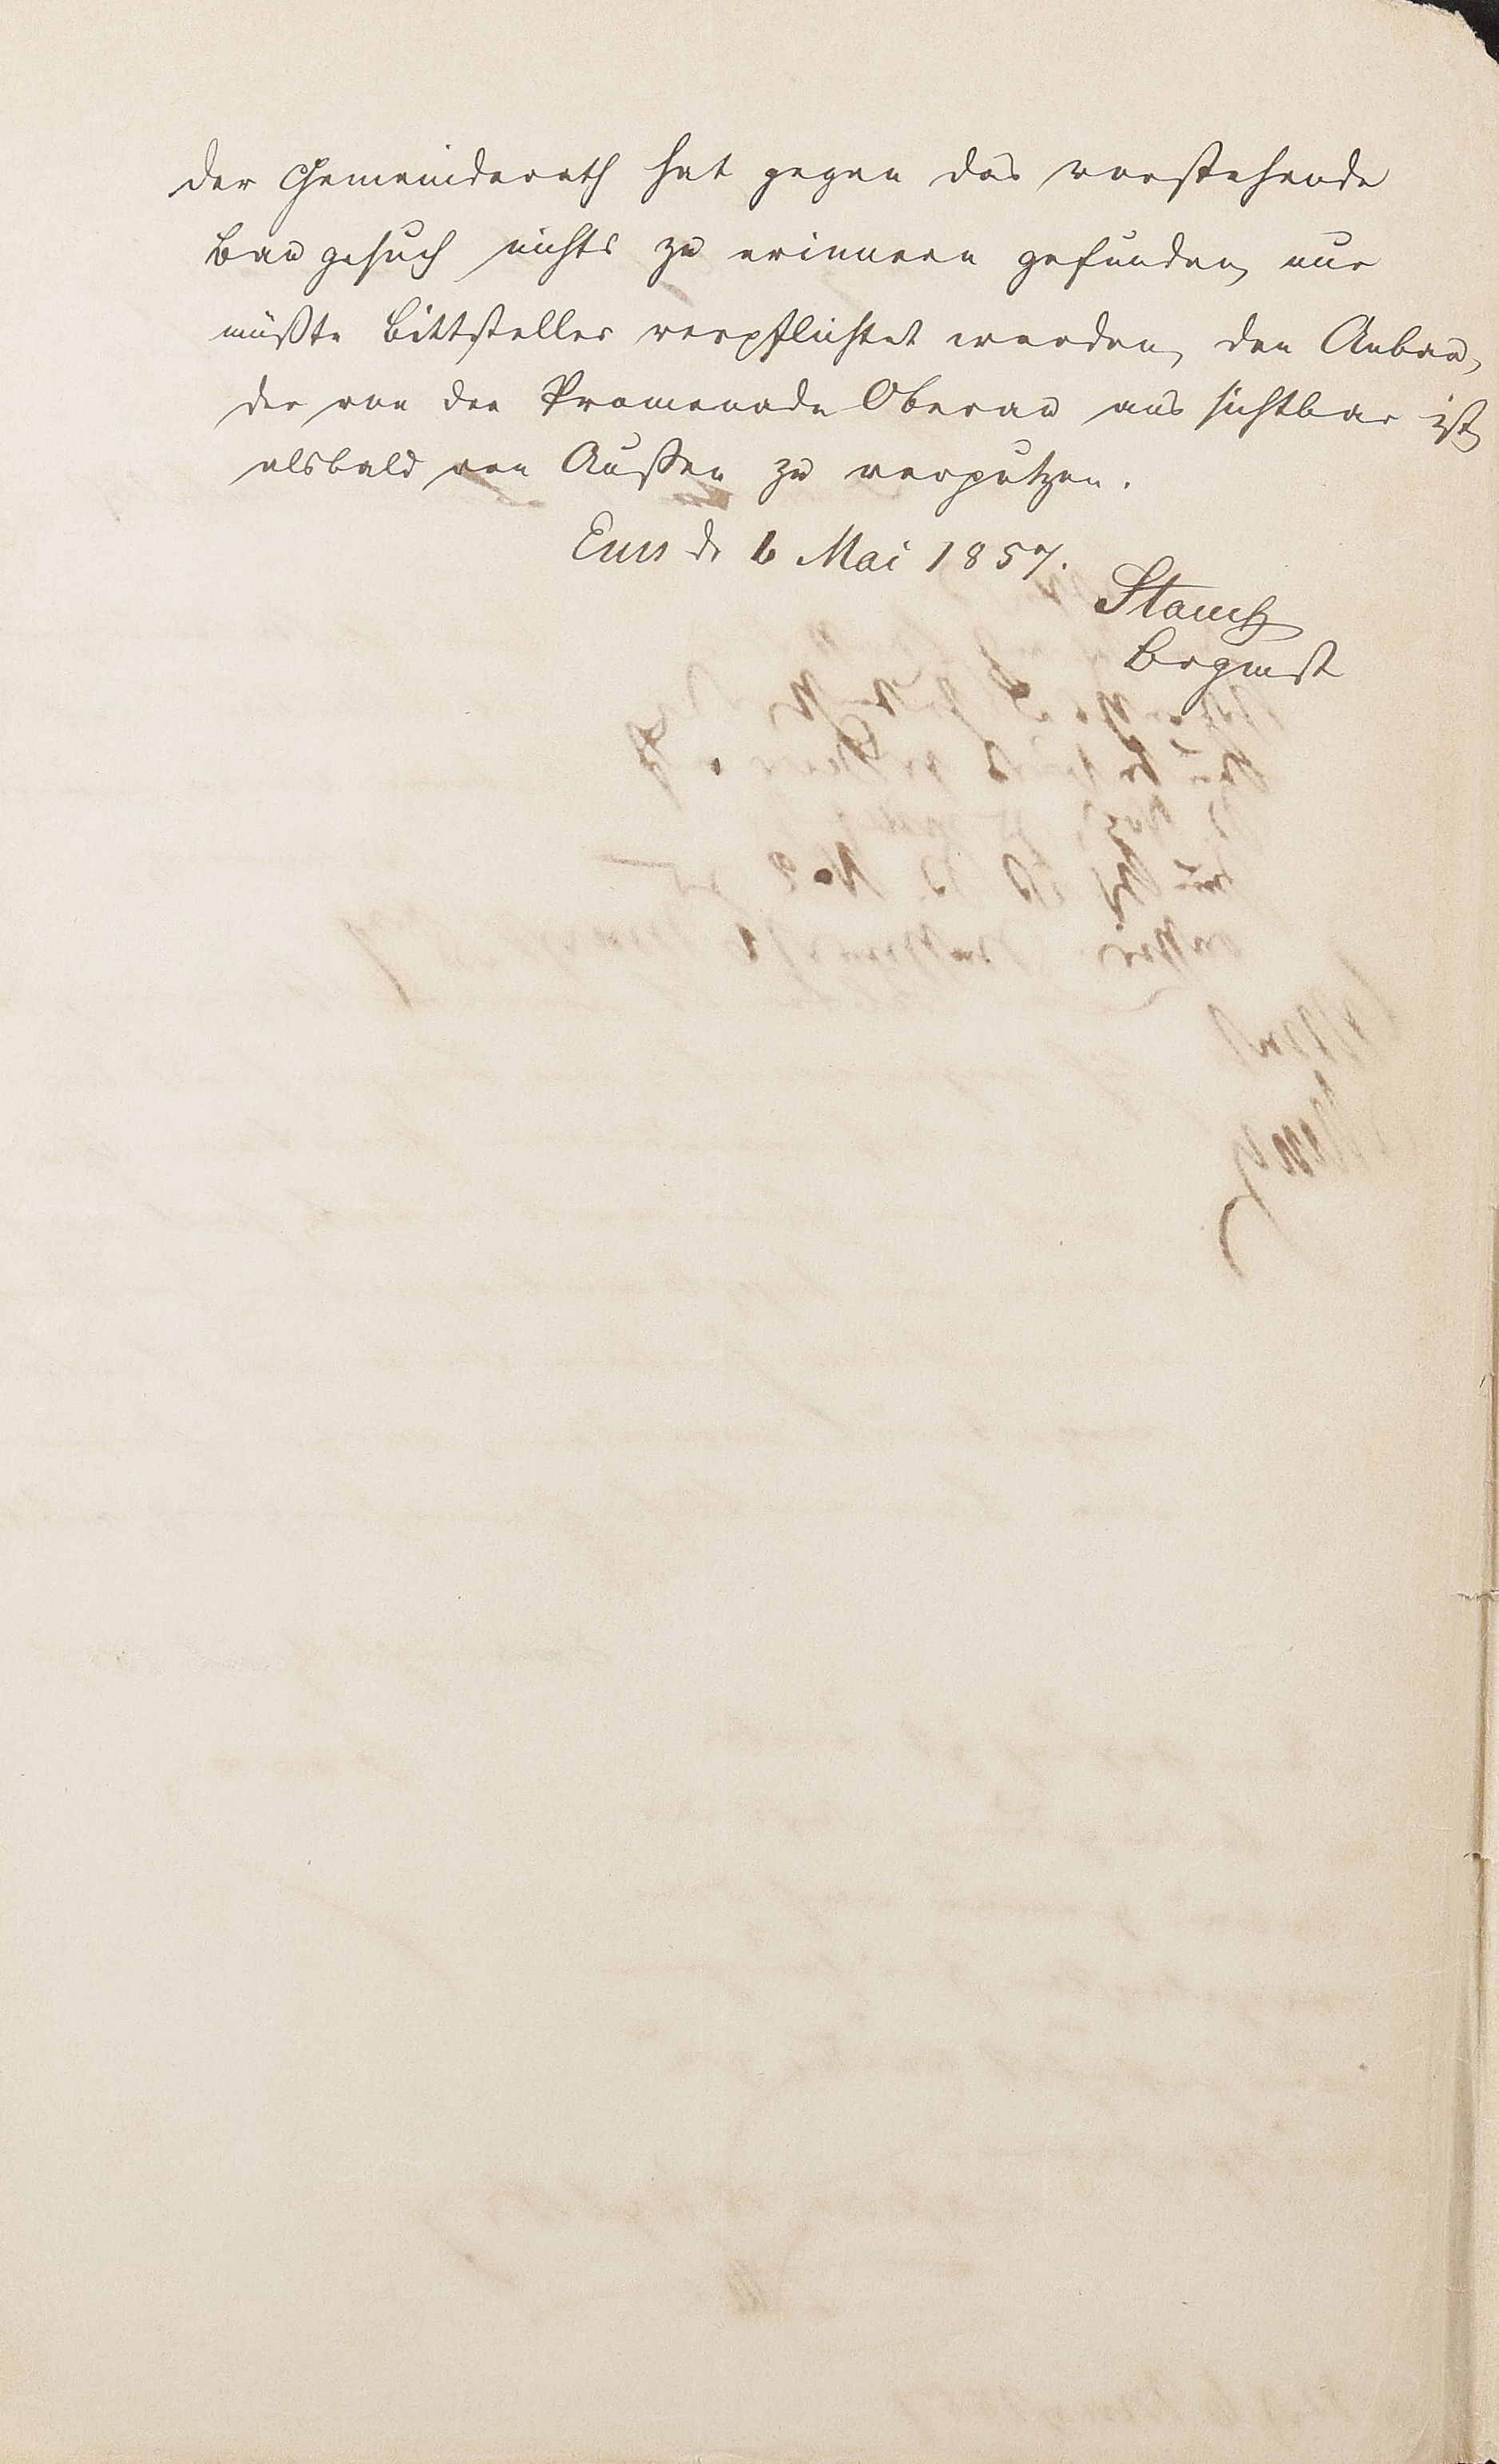 Der Gemeinderath hat gegen das vorstehende
Baugesuch nichts zu erinnern gefunden, nur
müßte Bittsteller verpflichtet werden, den Anbau,
der von der Promenade Oberau aus sichtbar ist,
alsbald von Außen zu verputzen.
Ems d. 6 Mai 1857.
Brgmst